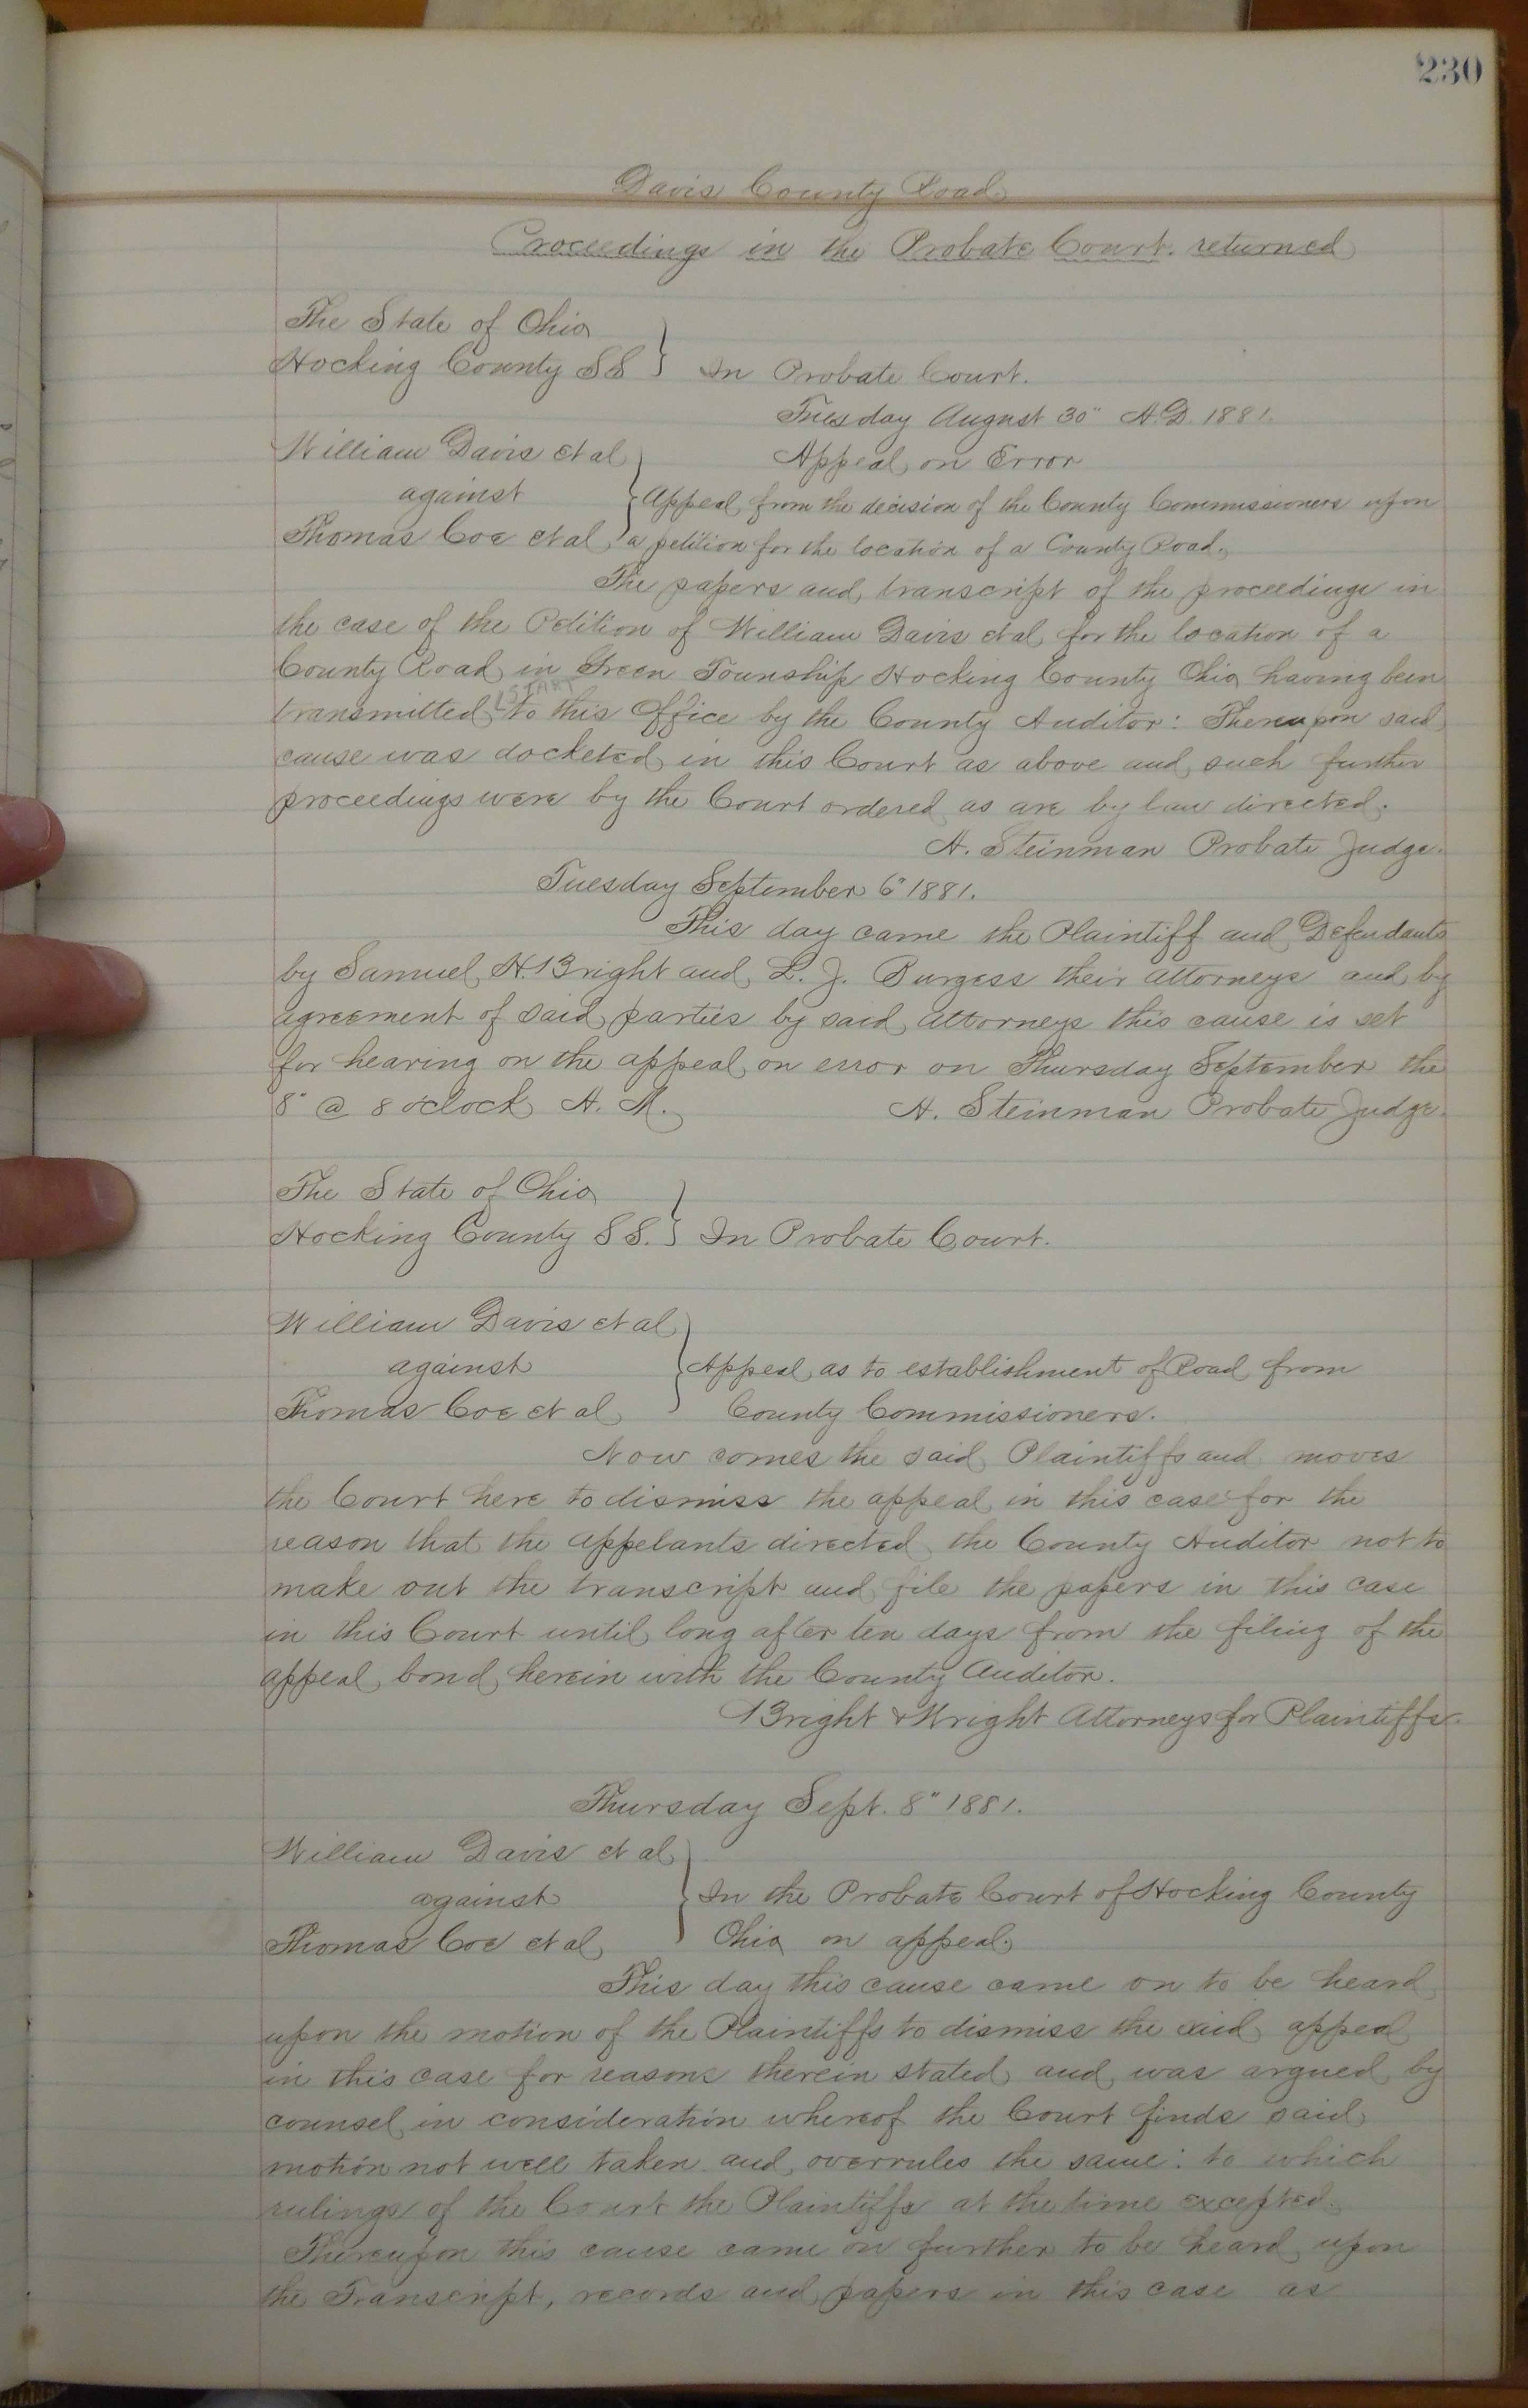 230
Davis County Road.
Proceedings in the Probate Court. returned
The State of Ohio
Hocking County SS } In Probate Court.
Tuesday August 30" A.D. 1881.
William Davis et al Appeal on Error
against } Appeal from the decision of the County Commissioners upon
Thomas Coe et al a petition for the location of a County Road.
The papers and transcript of the proceedings in
the case of the Petition of William Davis et al for the location of a
County Road in Green Township Hocking County Ohio having been
START
transmitted to this Office by the County Auditor: Thereupon said
cause was docketed in this Court as above and such further
proceedings were by the Court ordered as are by law directed.
A. Steinman Probate Judge.
Tuesday September 6" 1881.
This day came the Plaintiff and Defendants
by Samuel H. Bright and L. J. Burgess their attorneys and by
agreement of said parties by said attorneys this cause is set
for hearing on the appeal on error on Thursday September the
8" @ 8 oclock A. M. A. Steinman Probate Judge.
The State of Ohio
Hocking County SS. } In Probate Court.
William Davis et al
against } Appeal as to establishment of Road from
Thomas Coe et al County Commissioners.
Now comes the said Plaintiffs and moves
the Court here to dismiss the appeal in this case for the
reason that the appelants directed the County Auditor not to
make out the transcript and file the papers in this case
in this Court until long after ten days from the filing of the
appeal bond herein with the County Auditor.
Bright & Wright Attorneys for Plaintiffs.
Thursday Sept. 8" 1881.
William Davis et al
against } In the Probate Court of Hocking County
Thomas Coe et al Ohio on appeal.
This day this cause came on to be heard
upon the motion of the Plaintiffs to dismiss the said appeal
in this case for reasons therein stated and was argued by
counsel in consideration whereof the Court finds said
motion not well taken and overrules the same: to which
rulings of the Court the Plaintiffs at the time excepted.
Thereupon this cause came on further to be heard upon
the Transcript, records and papers in this case as